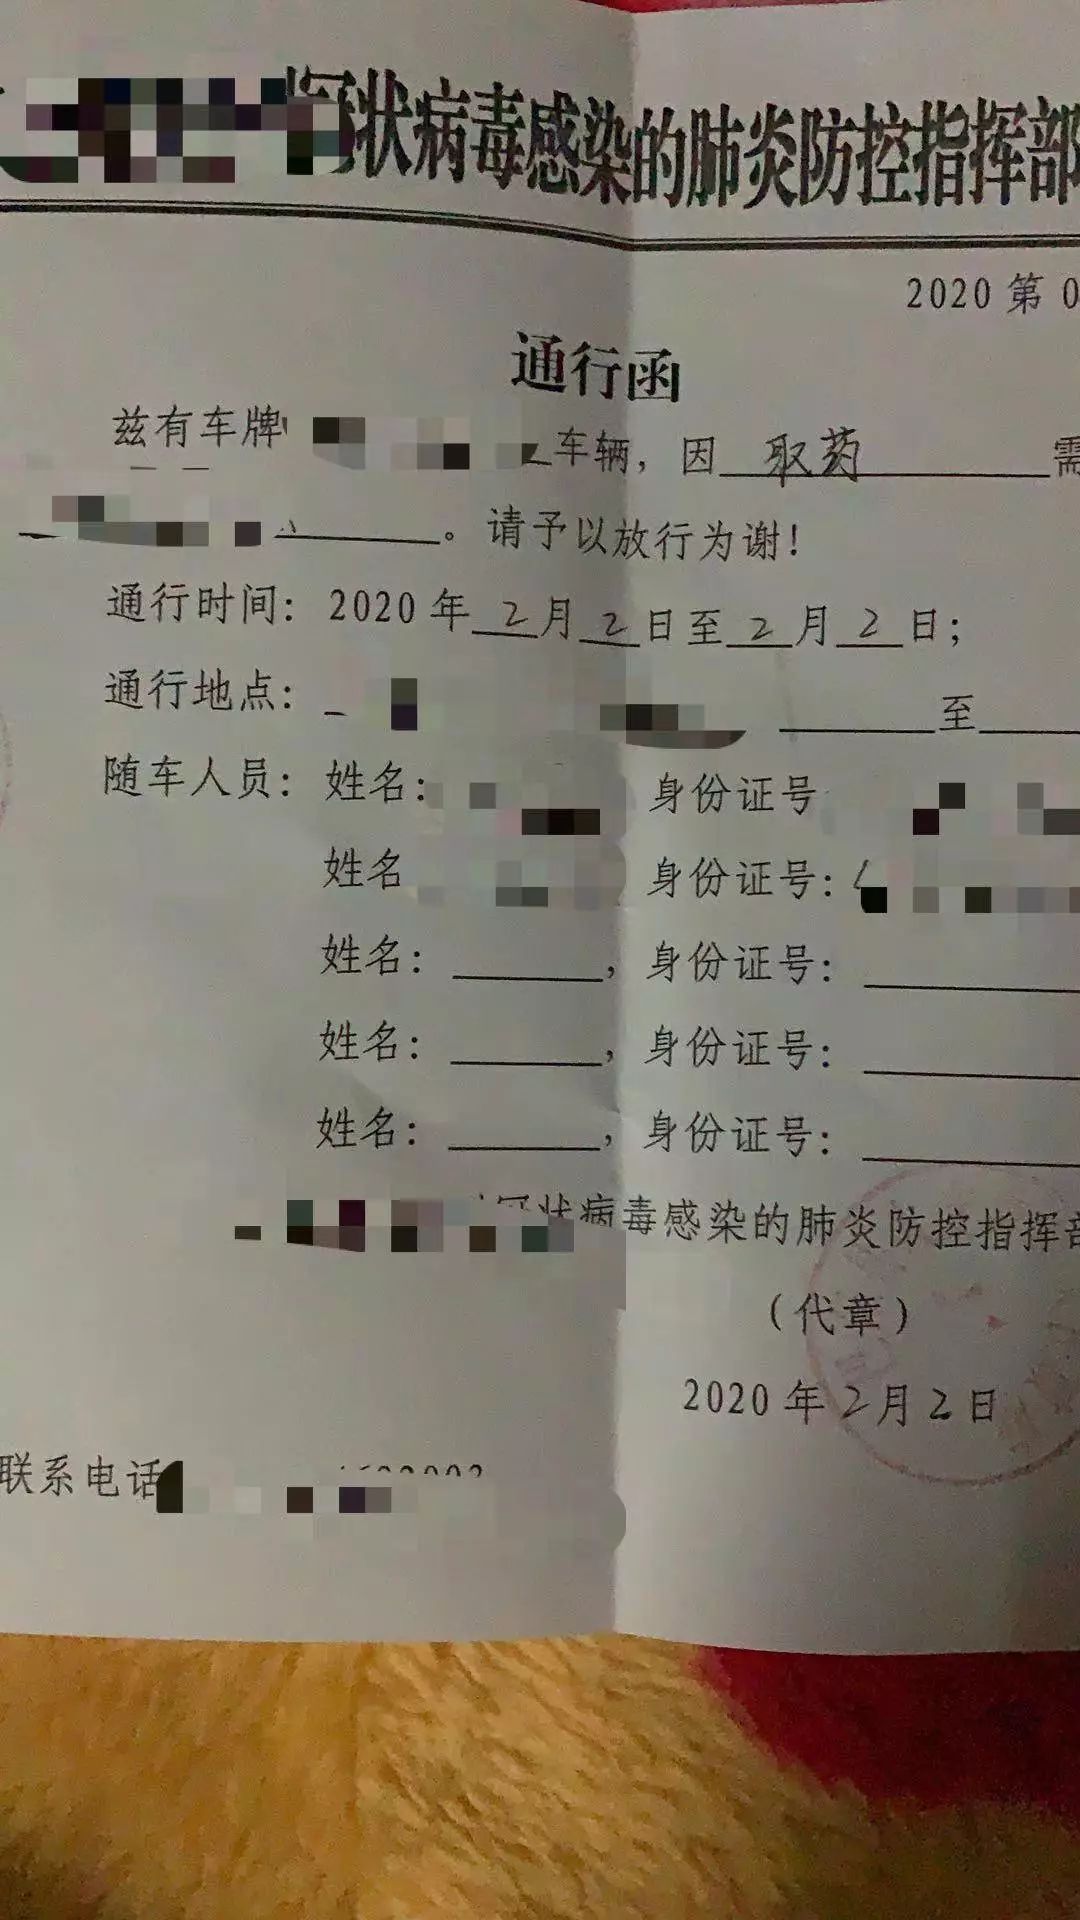 状病毒感染的肺炎防控指挥部
2020 第 0
通行函
兹有车牌 车辆，因 取药 需
。请予以放行为谢！
通行时间：2020 年 2 月 2 日至 2 月 2 日；
通行地点： 至
随车人员：姓名： 身份证号
姓名 身份证号：
姓名： ，身份证号：
姓名： ，身份证号：
姓名： ，身份证号：
状病毒感染的肺炎防控指挥部
（代章）
2020 年 2 月 2 日
联系电话